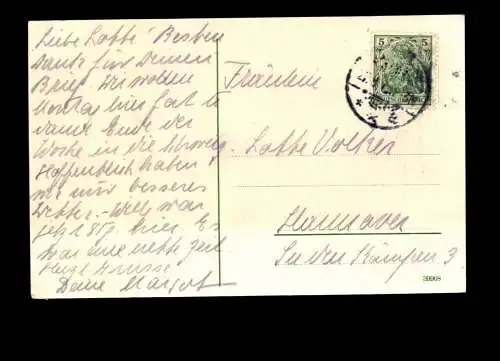 Liebe Lotte! Besten
Dank für Deinen
Brief. Wir wollen
Montag hier fort &
dann Ende der
Woche in die Schweiz
Hoffentlich haben
wir nur besseres
Wetter. - Willy war
jetzt 8 Tg. hier. Es
war eine nette Zeit
Herzl. Grüsse
Deine Margot
5 5
Fräulein
Lotte Volker
Hannover
In den Kämpen 3
39908